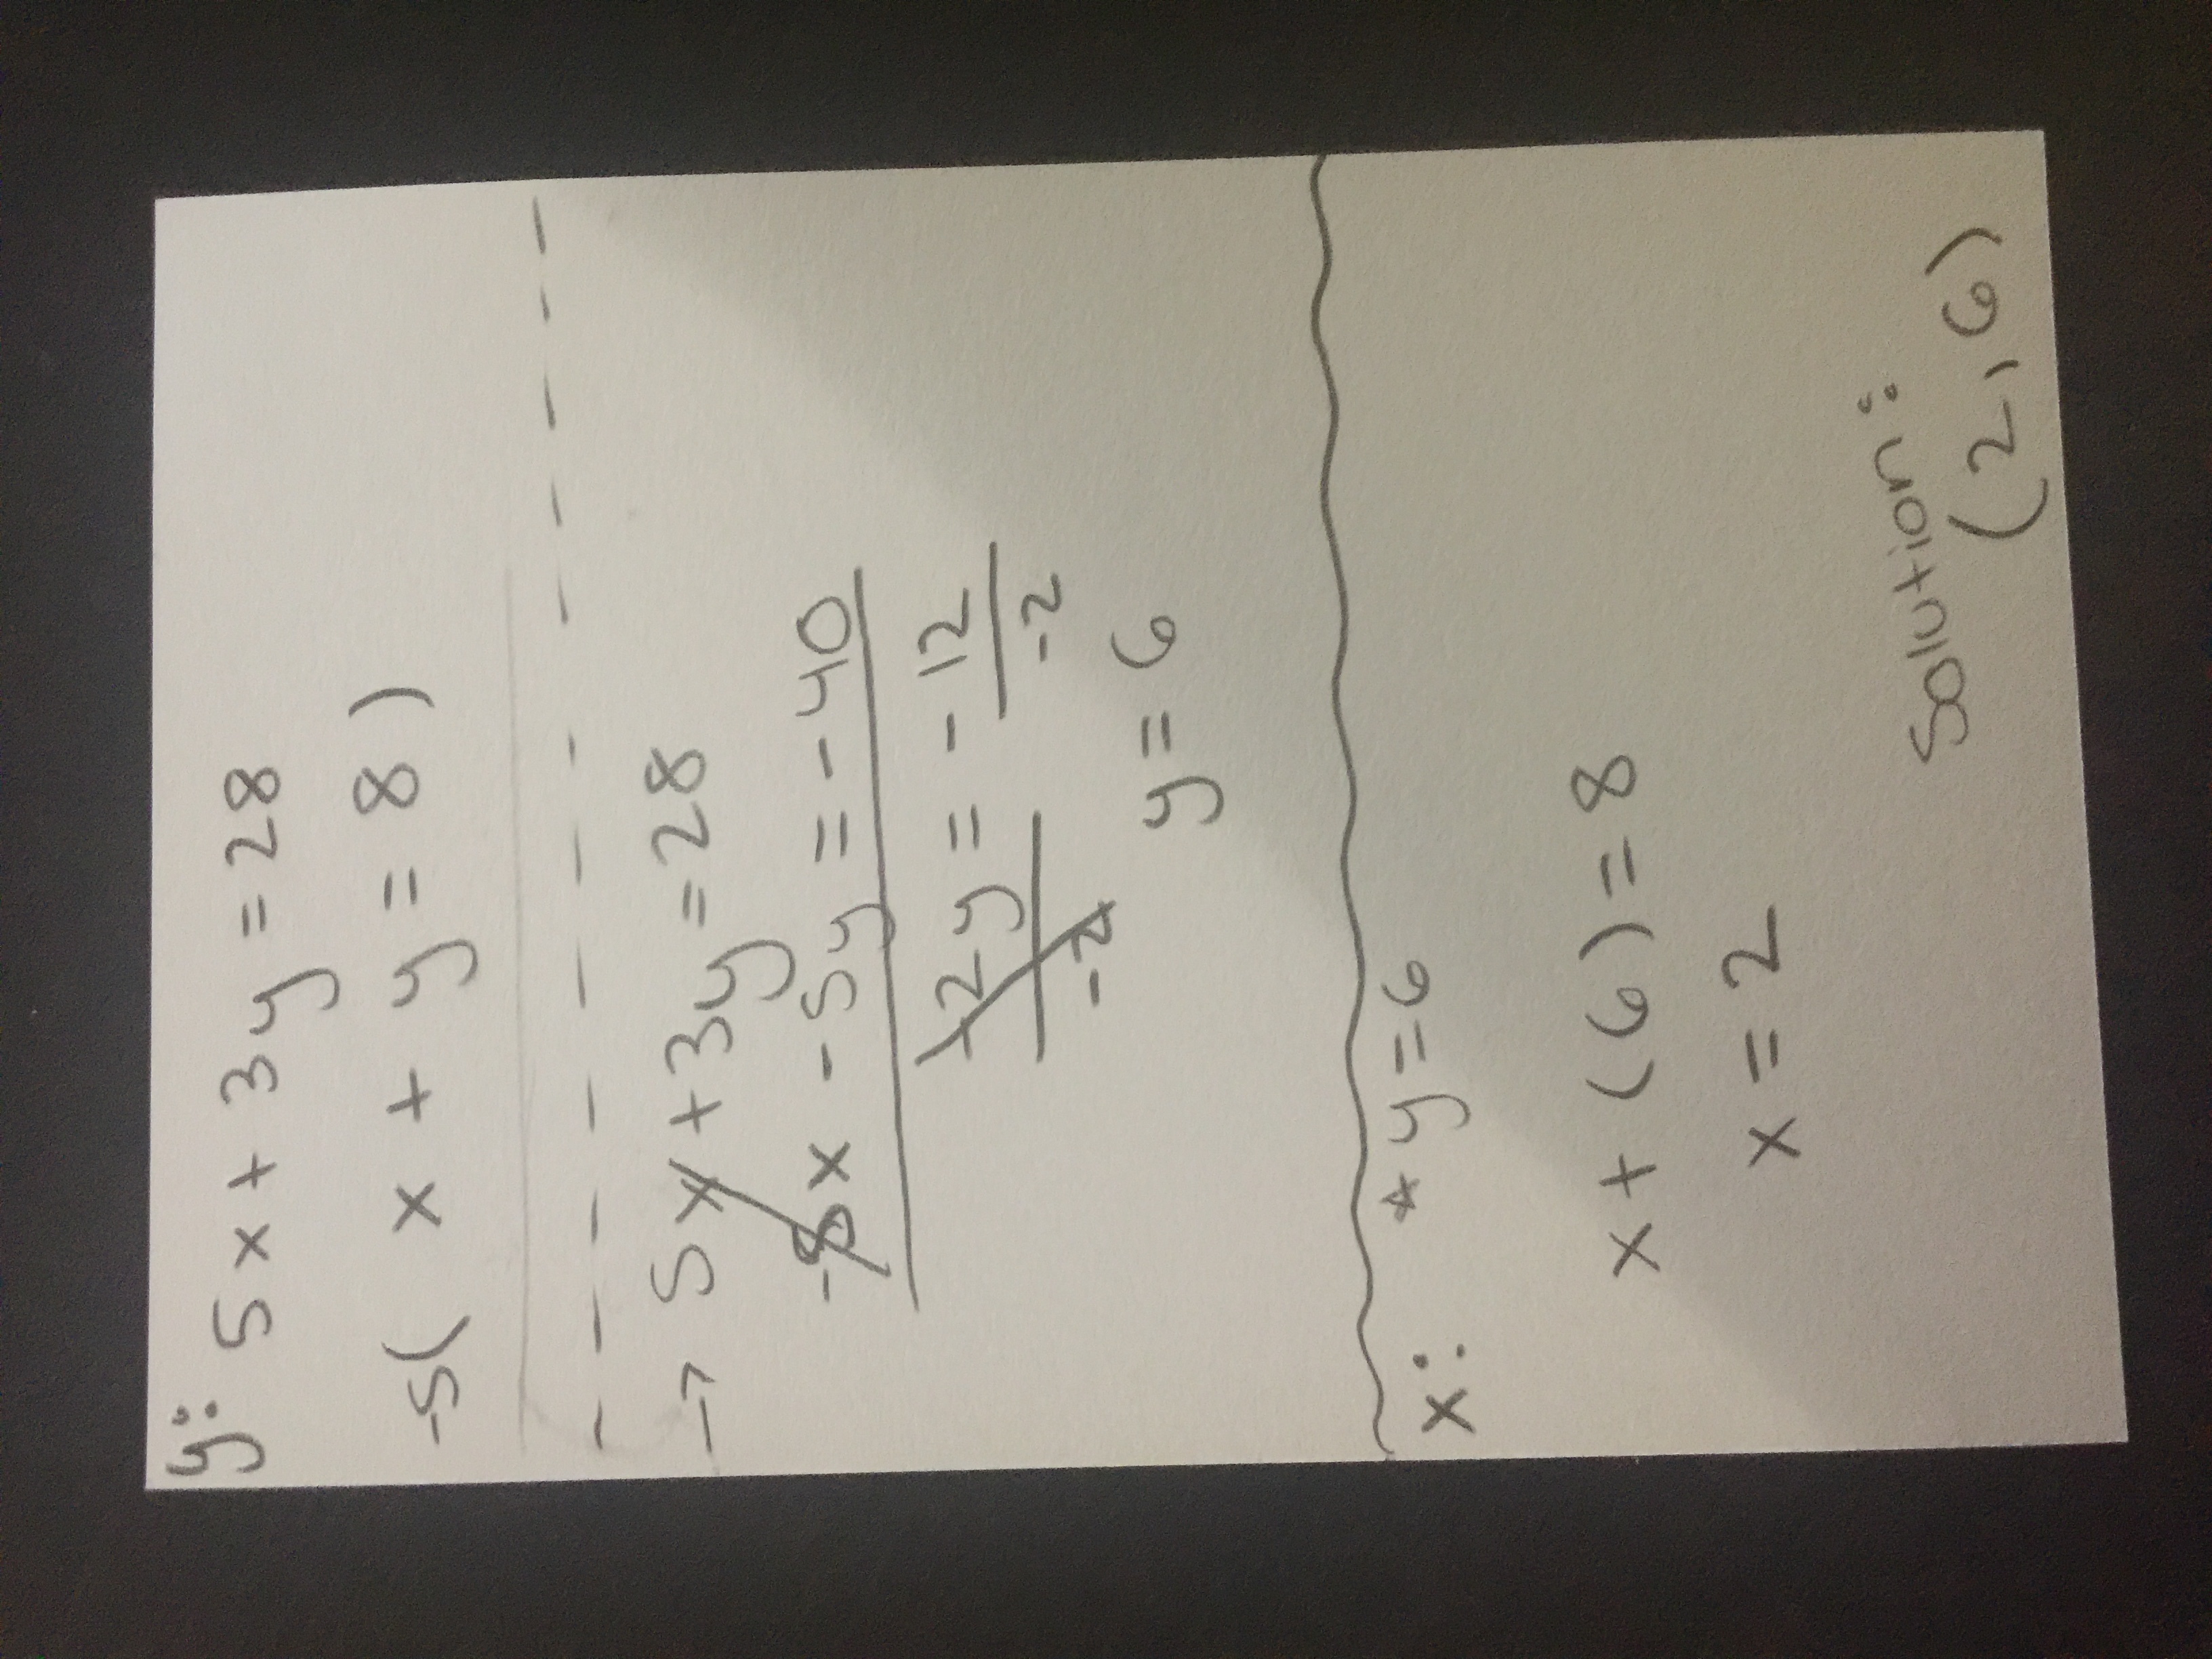 y: 5x + 3y = 28
-5( x + y = 8 )
→ 5x + 3y = 28
-5x - 5y = -40
-2y = -12
-2 -2
y = 6
x: * y = 6
x + (6) = 8
x = 2
Solution:
(2,6)